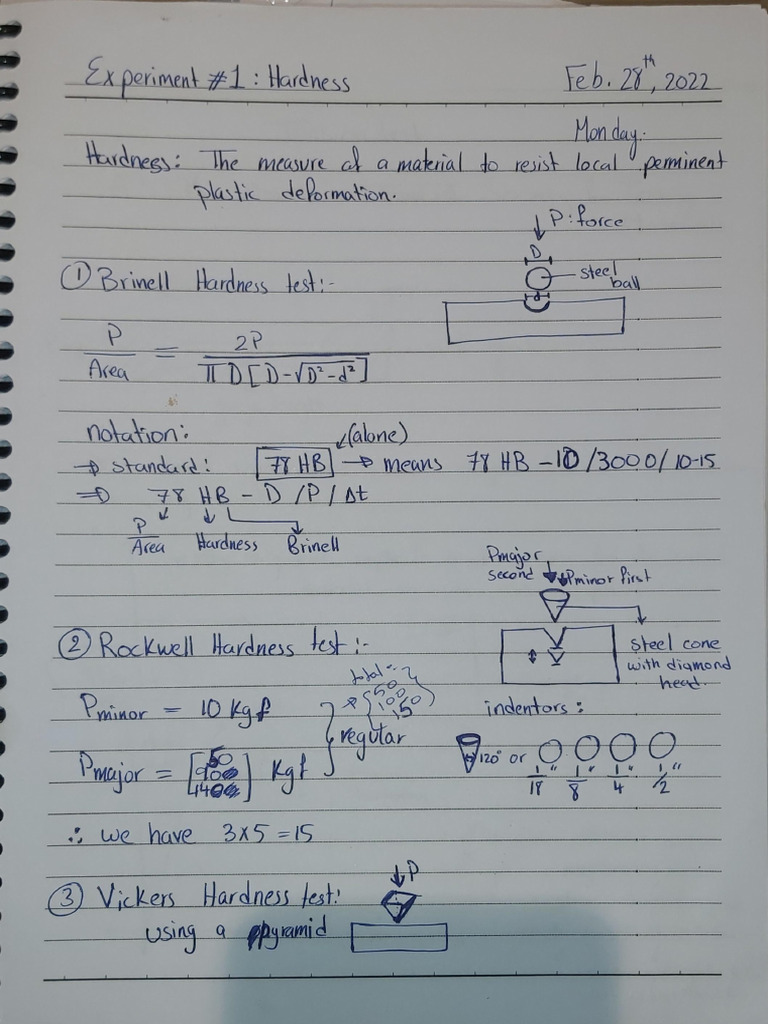 Experiment #1: Hardness Feb. 28th, 2022
Monday:
Hardness: The measure of a material to resist local perminent
plastic deformation.
P: force
D
① Brinell Hardness test:-
steel ball
P/Area = 2P/(π D[D-√D²-d²])
notation:
(alone)
→ standard: 78 HB → means 78 HB - 10/3000/10-15
⇒ 78 HB - D /P/ Δt
P/Area Hardness Brinell
Pmajor second Pminor first
② Rockwell Hardness test:-
steel cone with diamond head.
total =
Pminor = 10 Kgf
* {50 100 150}
indentors:
regular
120° or 1/18" 1/8" 1/4" 1/2"
Pmajor = [ ] Kgf
∴ we have 3x5 = 15
P
③ Vickers Hardness test:
using a pyramid